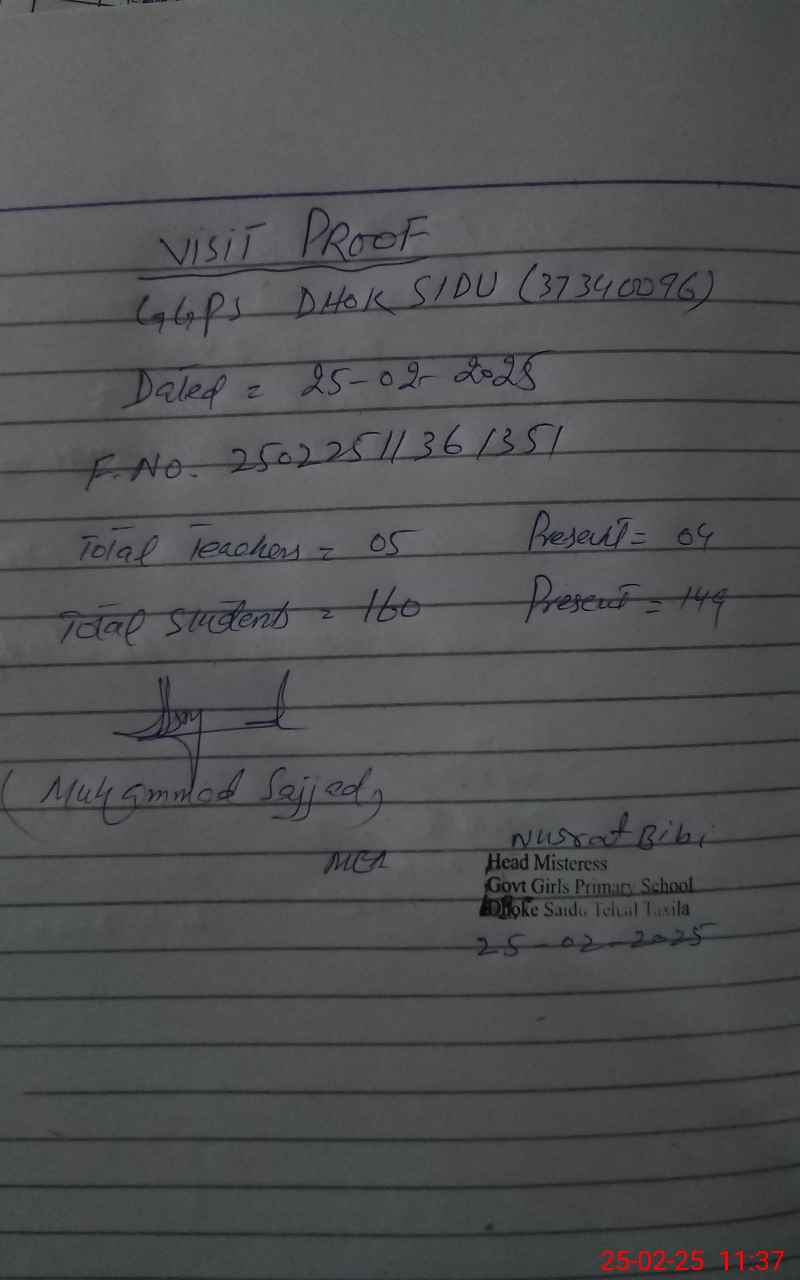 VISIT PROOF
GGPS DHOK SIDU (37340096)
Dated = 25-02-2025
F.No. 25022511361351
Total Teachers = 05 Present = 04
Total Students = 160 Present = 149
(Muhammad Sajjad)
MEA
Nusrat Bibi
Head Misteress
Govt Girls Primary School
Dhoke Saidu Tehsil Taxila
25-02-2025
25-02-25 11:37